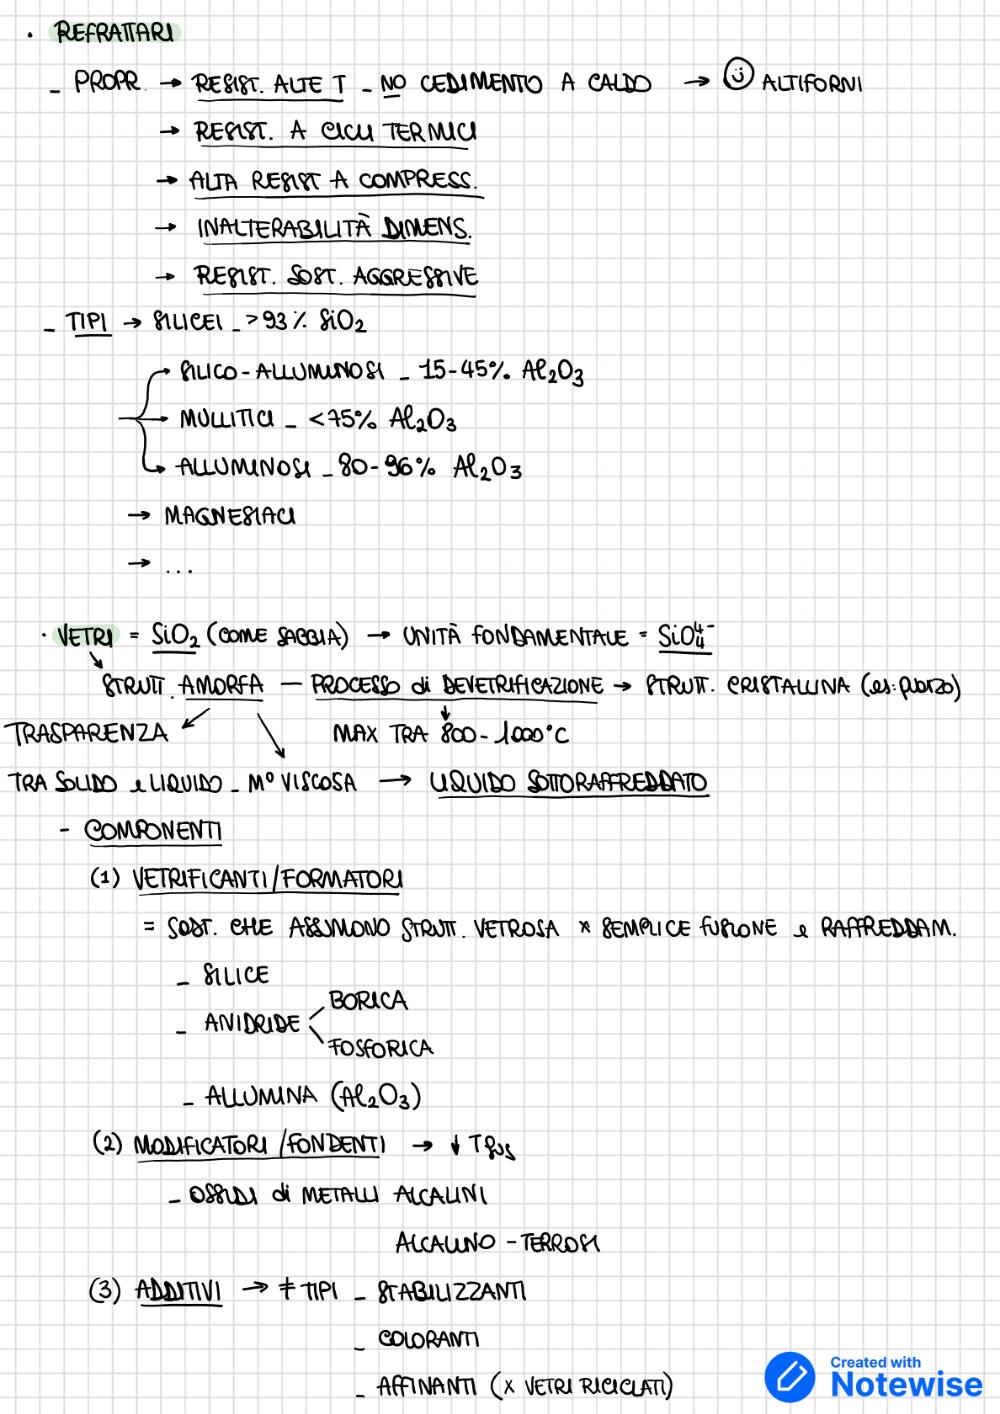 · REFRATTARI
- PROPR. → RESIST. ALTE T - NO CEDIMENTO A CALDO → ☺ ALTIFORNI
→ RESIST. A CICLI TERMICI
→ ALTA RESIST A COMPRESS.
→ INALTERABILITÀ DIMENS.
→ RESIST. SOST. AGGRESSIVE
- TIPI → SILICEI - >93% SiO2
→ SILICO-ALLUMINOSI - 15-45% Al2O3
→ MULLITICI - <75% Al2O3
→ ALLUMINOSI - 80-96% Al2O3
→ MAGNESIACI
→ ...
· VETRI = SiO2 (COME SABBIA) → UNITÀ FONDAMENTALE = SiO4^4-
STRUTT. AMORFA — PROCESSO di DEVETRIFICAZIONE → STRUTT. CRISTALLINA (es: quarzo)
TRASPARENZA MAX TRA 800-1000°C
TRA SOLIDO e LIQUIDO - M° VISCOSA → LIQUIDO SOTTORAFFREDDATO
- COMPONENTI
(1) VETRIFICANTI/FORMATORI
= SOST. CHE ASSUMONO STRUTT. VETROSA x SEMPLICE FUSIONE e RAFFREDDAM.
- SILICE
BORICA
- ANIDRIDE
FOSFORICA
- ALLUMINA (Al2O3)
(2) MODIFICATORI/FONDENTI → ↓ Tfus
- OSSIDI di METALLI ALCALINI
ALCALINO-TERROSI
(3) ADDITIVI → ≠ TIPI - STABILIZZANTI
- COLORANTI
- AFFINANTI (x VETRI RICICLATI)
Created with
Notewise